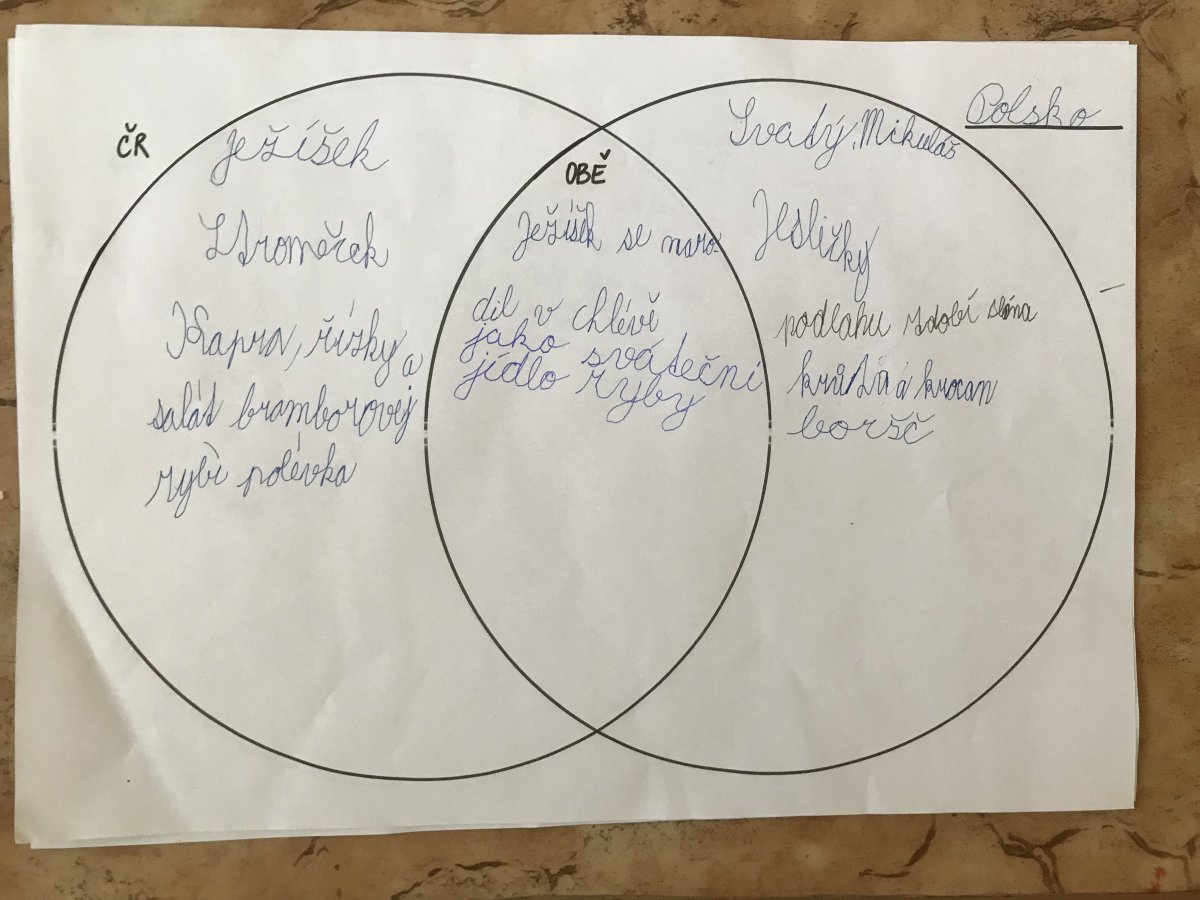 ČR
Ježíšek
Stromeček
Kapra, řízky a
salát bramborovej
rybí polévka
OBĚ
Ježíšek se naro-
dil v chlévě
jako sváteční
jídlo ryby
Polsko
Svatý, Mikuláš
Jesličky
podlahu zdobí sláma
krůta a krocan
boršč